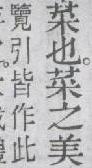 菜也。菜之美
覽引皆作此